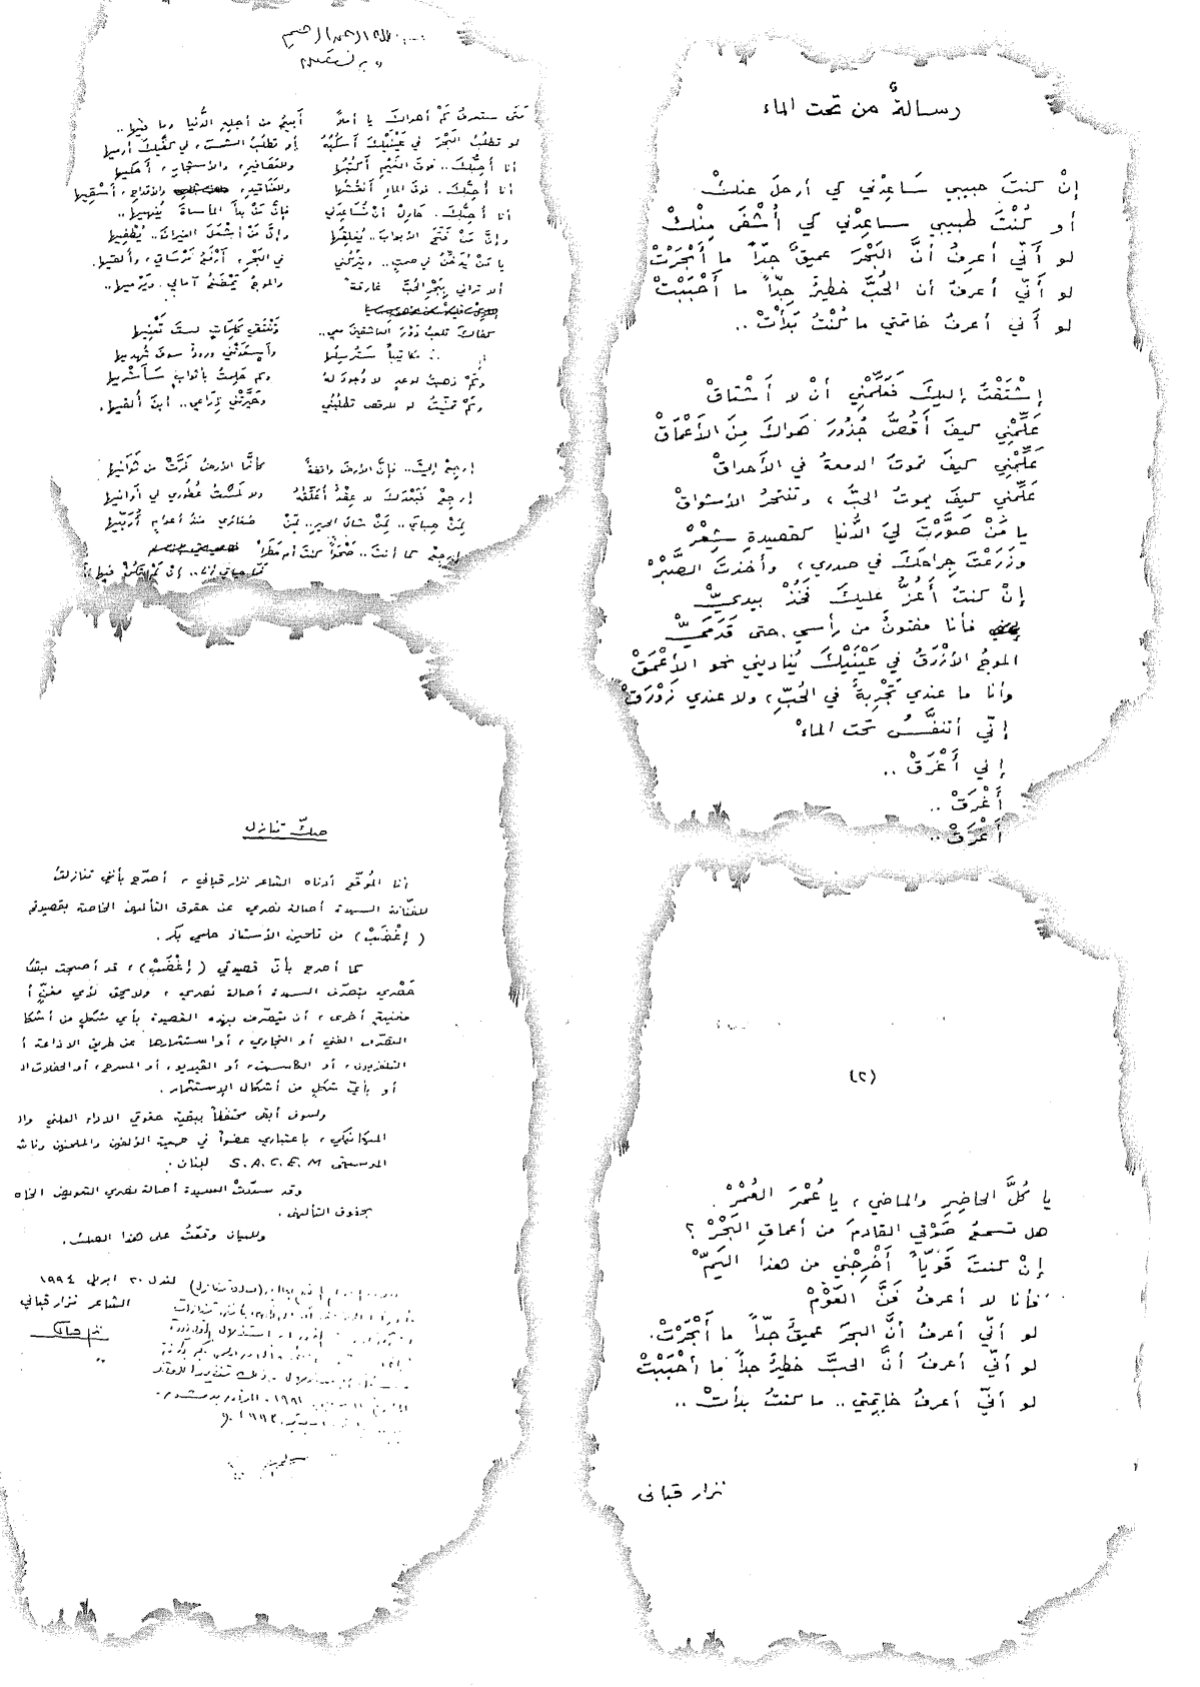 رسالةٌ من تحت الماء
إنْ كنتَ حبيبي سَاعِدْني كي أرحلَ عنكْ
أو كُنْتَ طبيبي ساعِدْني كي أُشْفَى مِنْكْ
لو أَنّي أعرفُ أنَّ البَحْرَ عميقٌ جدّاً ما أَبْحَرْتْ
لو أَنّي أعرفُ أن الحُبَّ خطيرٌ جِدّاً ما أَحْبَبْتْ
لو أَني أعرفُ خاتمتي ما كُنْتُ بَدَأْتْ ..
إِشْتَقْتُ إليكَ فَعَلِّمْني أنْ لا أَشْتاقْ
عَلِّمْني كيفَ أَقُصُّ جُذُورَ هَواكَ مِنَ الأَعْمَاقْ
عَلِّمْني كيفَ تموتُ الدمعةُ في الأحداقْ
عَلِّمْني كيفَ يموتُ الحبُّ ، وتنتحرُ الأشواقْ
يا مَنْ صَوَّرْتَ ليَ الدُّنيا كقصيدةِ شِعْرْ
وزَرَعْتَ جِراحَكَ في صدري ، وأخذتَ الصَّبْرْ
إنْ كنتُ أَعُزُّ عليكَ فَخُذْ بيديّْ
فأنا مفتونٌ من رأسي حتى قَدَمَيّْ
الموجُ الأزْرَقُ في عَيْنَيْكَ يُناديني نحو الأَعْمَقْ
وأنا ما عندي تَجْرِبةٌ في الحُبِّ ، ولا عندي زَوْرَقْ
إنّي أتنفَّسُ تحت الماءْ
إني أَغْرَقْ ..
أَغْرَقْ ..
أَغْرَقْ ..
(٢)
يا كُلَّ الحاضِرِ والماضي ، يا عُمْرَ العُمْرْ .
هل تسمعُ صَوْتي القادمَ من أعماقِ البَحْرْ ؟
إنْ كنتَ قَوِيّاً أَخْرِجْني من هذا اليَمّْ
فأنا لا أعرفُ فَنَّ العَوْمْ
لو أنّي أعرفُ أنَّ البحرَ عميقٌ جدّاً ما أَبْحَرْتْ .
لو أنّي أعرفُ أنَّ الحبَّ خطيرٌ جداً ما أحْبَبْتْ
لو أنّي أعرفُ خاتِمتي .. ما كنتُ بدأتْ ..
نزار قباني
متى ستعرفُ كمْ أهواكَ يا أملاً أبيعُ من أجلِهِ الدُّنيا وما فيها ..
لو تطلبُ البَحْرَ في عَيْنَيْكَ أَسْكُبُهُ أو تطلبُ الشمسَ في كفَّيكَ أرميها
أنا أُحِبُّكَ .. فوقَ الغَيْمِ أَكْتُبُها وللعصافيرِ ، والأشجارِ ، أحكيها
أنا أُحِبُّكَ . فوقَ الماءِ أَنْقُشُها وللعناقيدِ ، والأقداحِ ، أسْقِيها
أنا أُحِبُّكَ . حاولْ أنْ تُساعِدَني فإنَّ مَنْ بدأ المأساةَ يُنهيها ..
وإنَّ مَنْ فَتَحَ الأبوابَ .. يُغلِقُها وإنَّ مَنْ أَشْعَلَ النيرانَ .. يُطْفِيها
يا مَنْ يُدَخِّنُ في صمتٍ .. ويترُكُني في البَحْرِ ، أرْفَعُ مَرْساتي ، وألقيها .
ألا تراني ببَحْرِ الحُبِّ غارقةً والموجُ يَمْضَغُ آمالي . ويَرْميها ..
كفاكَ تلعبُ دَوْرَ العاشقينَ معي .. وتَنْتَقي كَلِمَاتٍ لستَ تَعْنِيها
مكاتيباً سَتُرسِلُها وأسعَدَتْني ورودٌ سوفَ تُهديها
وكَمْ ذهبتُ لوعدٍ لا وُجودَ لهُ وكم حَلِمتُ بأثوابٍ سَأَشْرِيها
وكَمْ تمنّيتُ لو للرقصِ تطلبُني وحَيَّرَتْني ذِراعي .. أينَ أُلقيها .
إرجِعْ إليَّ .. فإنَّ الأرضَ واقفةٌ كأنَّما الأرضُ فَرَّتْ من ثَوَانيها
إرجِعْ فَبَعْدَكَ لا عِقْدٌ أُعَلِّقُهُ ولا لَمَسْتُ عُطُوري في أوانيها
لِمَنْ صِبايَ .. لِمَنْ شالُ الحريرِ .. لِمَنْ ضفائري منذُ أعوامٍ أُرَبِّيها
إرجِعْ كما أنتَ .. صَحْواً كنتَ أم مَطَراً
فما حياتي أنا .. إنْ لم تَكُنْ فيها
صكّ تنازل
أنا المُوقّع أدناه الشاعر نزار قباني ، أصرّح بأني تنازلتُ
للفنّانة السيدة أصالة نصري عن حقوق التأليف الخاصة بقصيدتي
( إغْضَبْ ) من تلحين الأستاذ حلمي بَكر .
كما أصرح بأنّ قصيدتي ( إغْضَبْ ) ، قد أصبحت
حَصْري بتصرّف السيدة أصالة نصري ، ولا يحق لأي مغنٍّ أ
مغنيةٍ أخرى ، أن تتصّرف بهذه القصيدة بأي شكلٍ من أشكا
التصرّف الفني أو التجاري ، أو استثمارها عن طريق الإذاعة أ
التلفزيون ، أو الكاسيت ، أو الفيديو ، أو المسرح ، أو الحفلات ال
أو بأيّ شكلٍ من أشكال الإستثمار .
ولسوف أبقى محتفظاً ببقية حقوقي الاداء العلني وال
الميكانيكي ، باعتباري عضواً في جمعية المؤلفين والملحنين وناش
الموسيقى S.A.C.E.M لبنان .
وقد سدّدتْ السيدة أصالة نصري التعويض الخاص
بحقوق التأليف .
وللبيان وقعّتُ على هذا الصك .
لندن ٢٠ ابريل ١٩٩٤
الشاعر نزار قباني